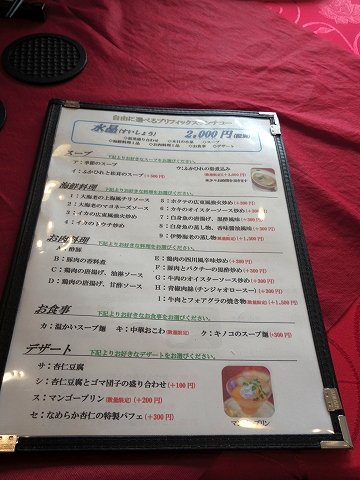 自由に選べるプリフィックスランチコー
水晶(すいしょう) 2,000円(税別)
◇スープ
◇お食事 ◇デザート
スープ 下記よりお好きなスープをお選びください。
ア：季節のスープ
イ：ふかひれと松茸のスープ(+300円)
海鮮料理 下記よりお好きなお料理をお選びください。
1：大海老の上海風チリソース
2：大海老のマヨネーズソース
3：イカの広東風強火炒め
4：イカのトウチ炒め
5：ホタテの広東風強火炒め(+300円)
6：カキのオイスターソース炒め(+300円)
7：白身魚の唐揚げ、黒酢風味(+300円)
8：白身魚の蒸し物、香味醤油風味(+300円)
9：伊勢海老の蒸し物(数量限定)(+1,500円)
お肉料理 下記よりお好きな料理をお選びください。
A：酢豚
B：豚肉の香料煮
C：鶏肉の唐揚げ、油淋ソース
D：鶏肉の唐揚げ、甘酢ソース
E：鶏肉の四川風辛味炒め(+300円)
F：豚肉とパクチーの黒酢炒め(+300円)
G：牛肉のオイスターソース炒め(+300円)
H：青椒肉絲(チンジャオロースー)(+300円)
I：牛肉とフォアグラの焼き物(数量限定)(+1,500円)
お食事 下記よりお好きなお食事をお選びください。
カ：温かいスープ麺 キ：中華おこわ(数量限定) ク：キノコのスープ麺(+300円)
デザート 下記よりお好きなデザートをお選びください。
サ：杏仁豆腐
シ：杏仁豆腐とゴマ団子の盛り合わせ(+100円)
ス：マンゴープリン(数量限定)(+200円)
セ：なめらか杏仁の特製パフェ(+300円)
マンゴープリン